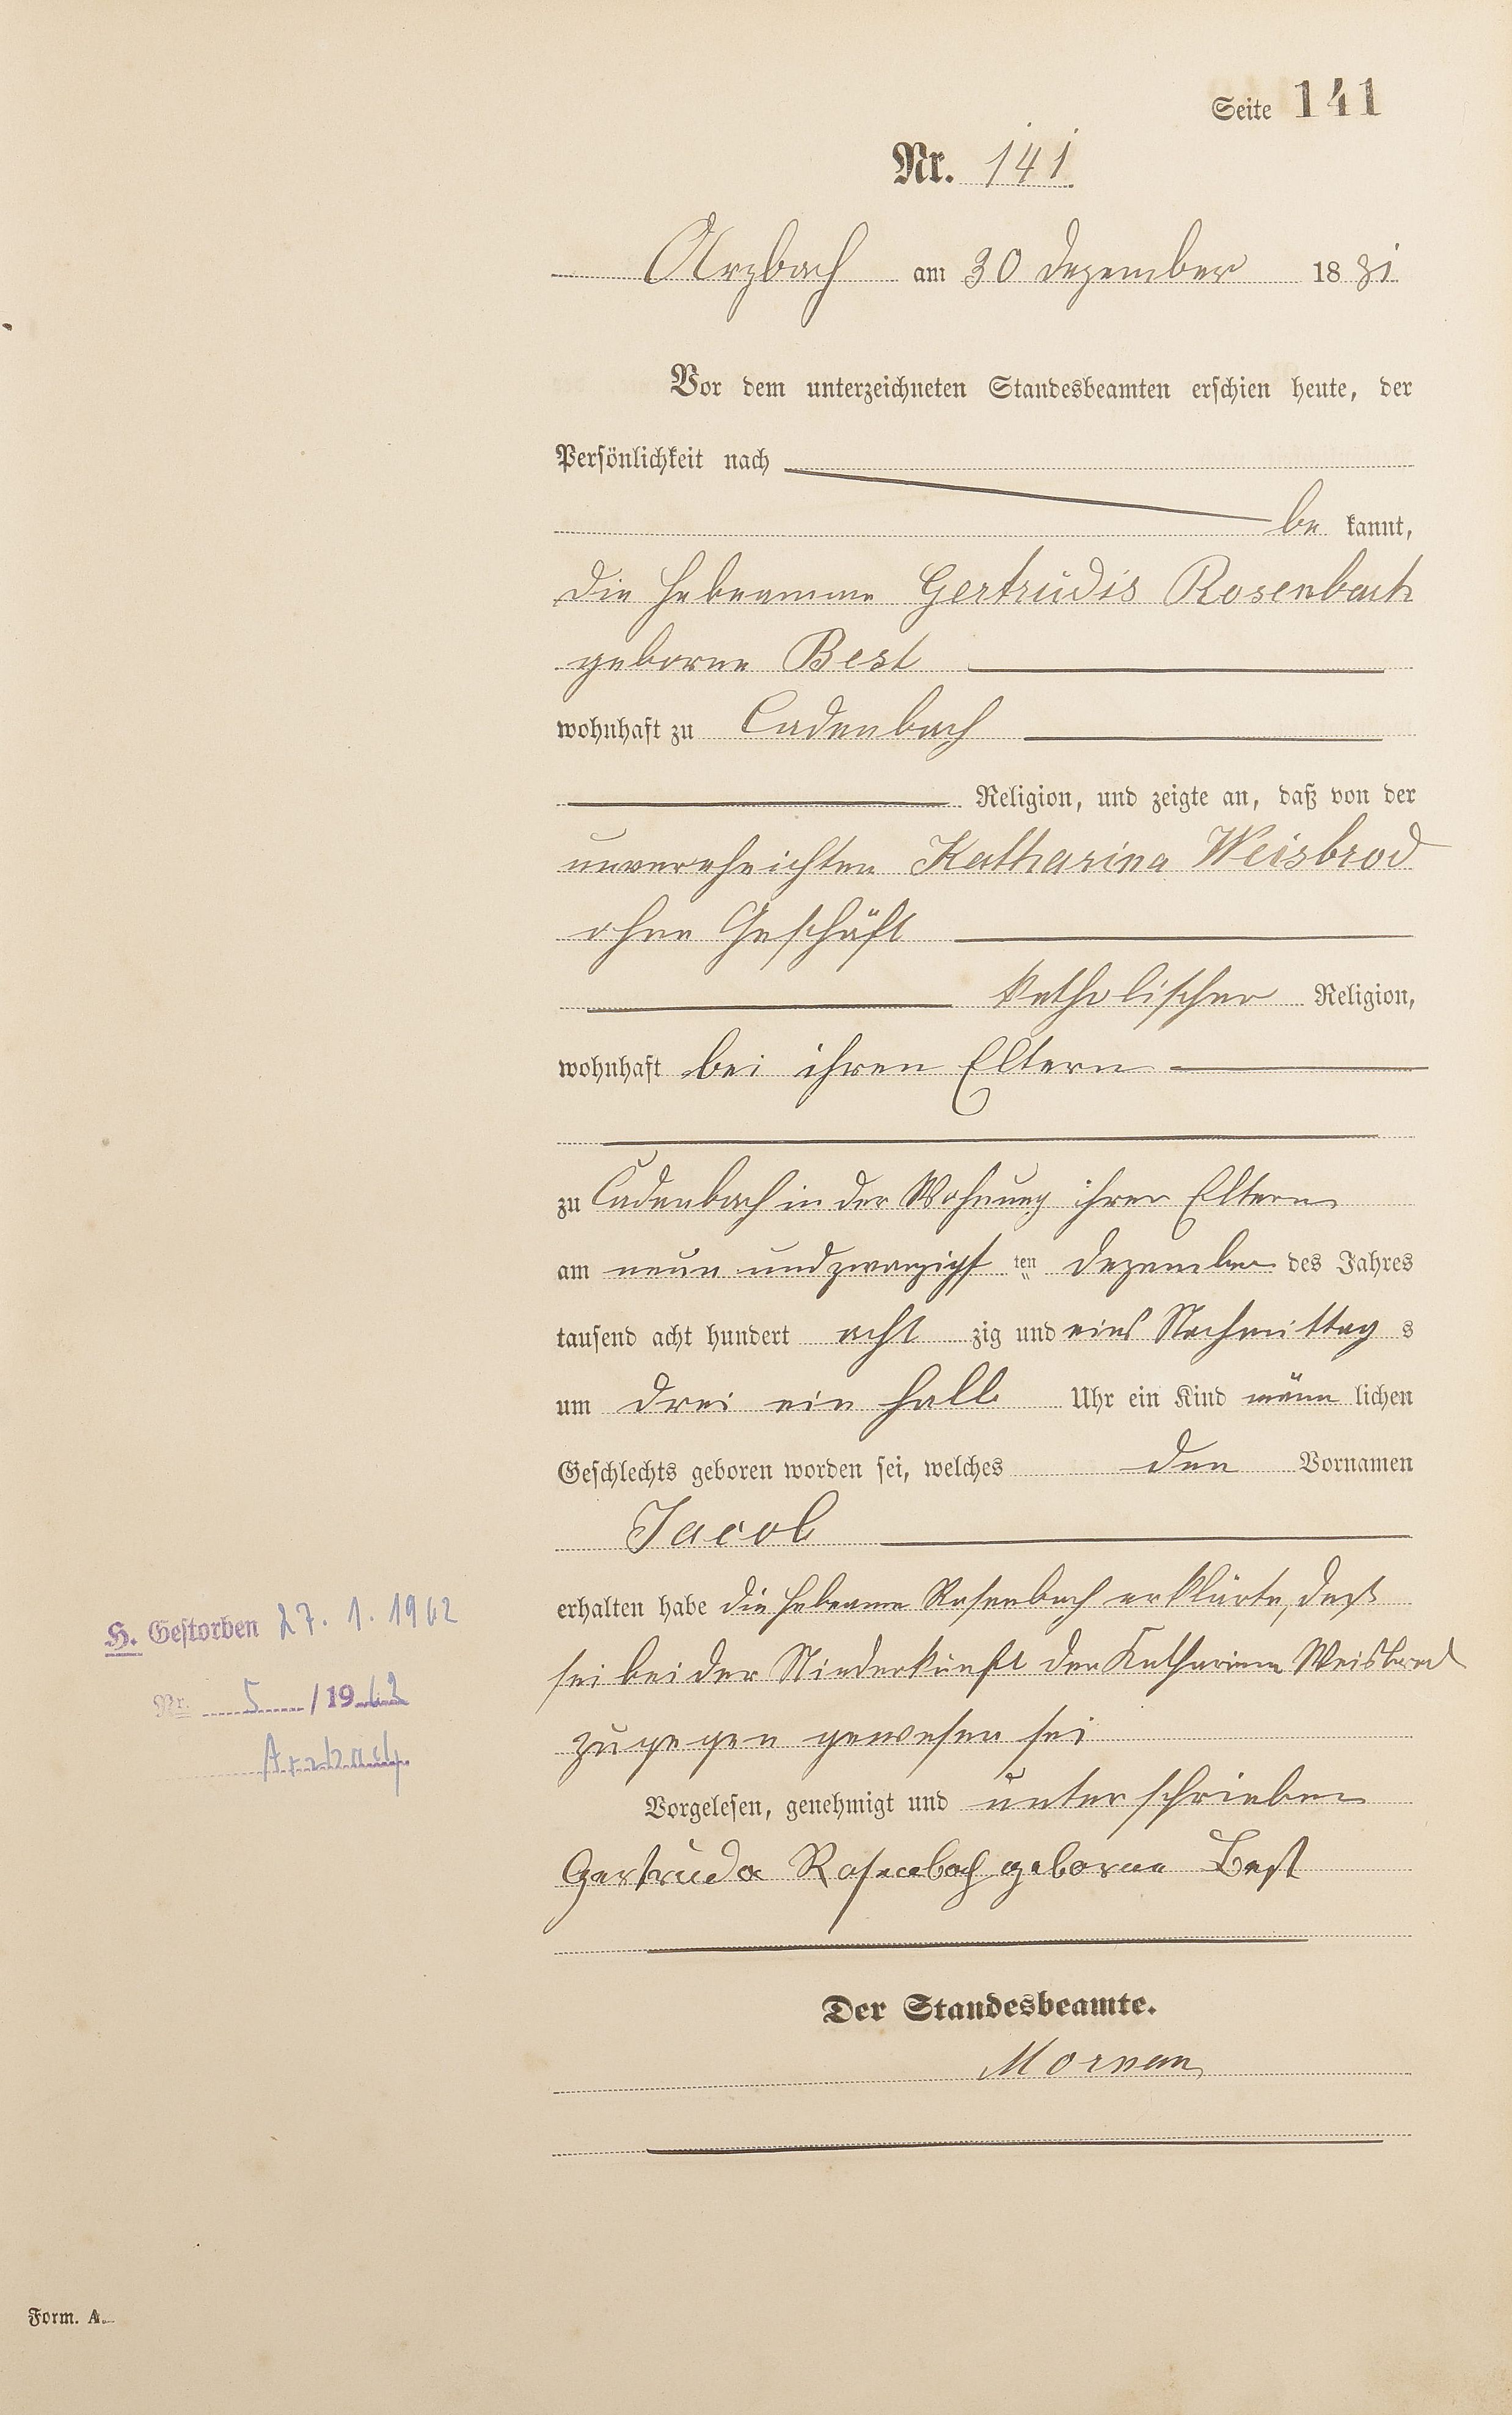 Seite 141
Nr. 141
Arzbach am 30 Dezember 1881
Vor dem unterzeichneten Standesbeamten erschien heute, der
Persönlichkeit nach
be kannt,
die Hebeamme Gertrudis Rosenbach
geborne Best
wohnhaft zu Cadenbach
Religion, und zeigte an, daß von der
unverehelichten Katharina Weisbrod
ohne Geschäft
katholischer Religion,
wohnhaft bei ihren Eltern
zu Cadenbach in der Wohnung ihrer Eltern
am neun und zwanzigst ten Dezember des Jahres
tausend acht hundert acht zig und eins Nachmittag s
um drei ein halb Uhr ein Kind männ lichen
Geschlechts geboren worden sei, welches den Vornamen
Jacob
erhalten habe die Hebeame Rosenbach erklärte, daß
sei bei der Niederkunft der Katharina Weisbrod
zugegen gewesen sei
Vorgelesen, genehmigt und unterschrieben
Gertruda Rosenbach geborne Best
Der Standesbeamte.
H. Gestorben 27. 1. 1962
Nr. 5 / 1962
Arzbach
Form. A.